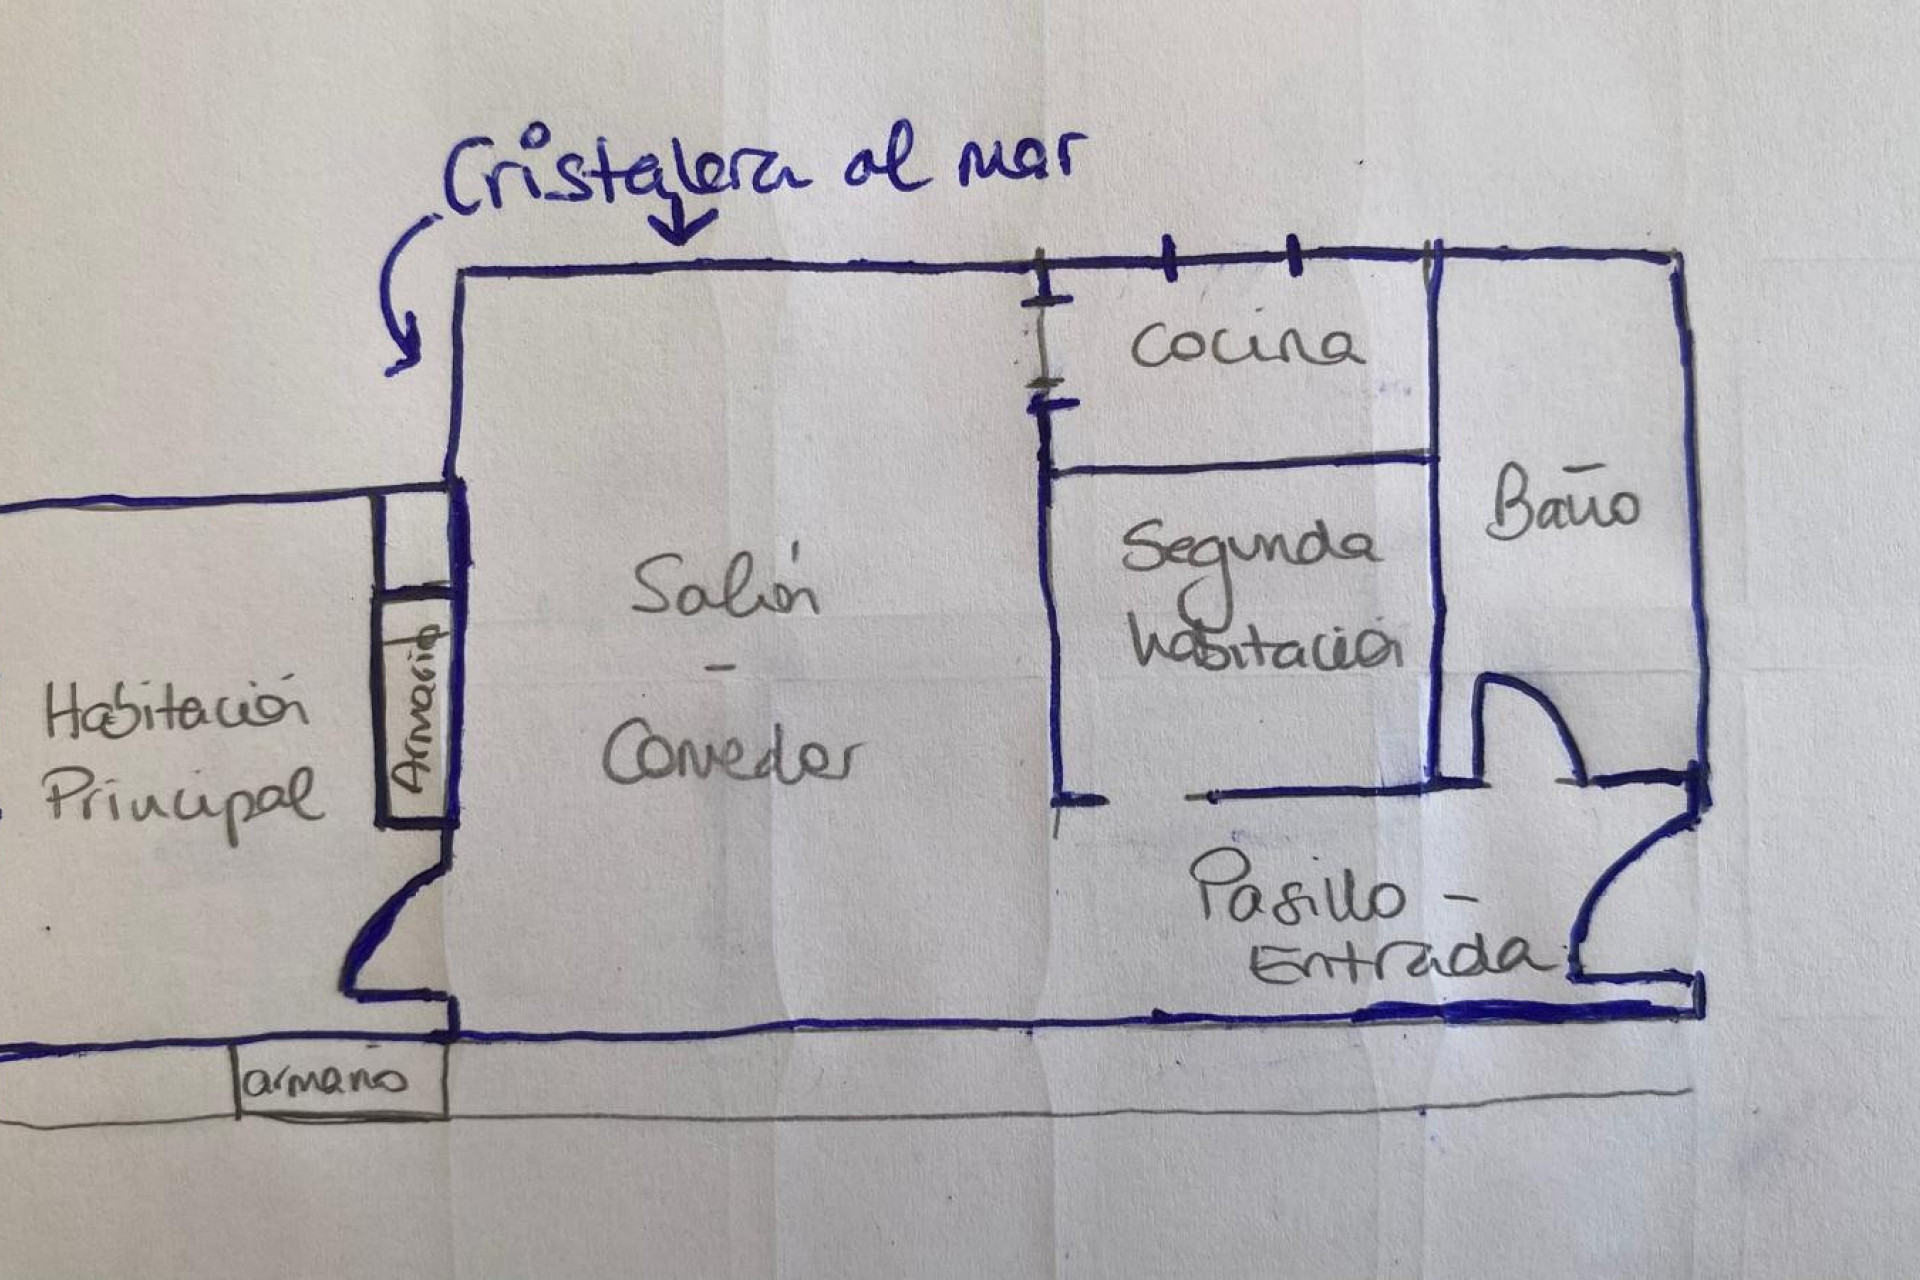 Cristalera al mar
Cocina
Baño
Segunda
habitación
Salón
-
Comedor
Habitación
Principal
Armario
Pasillo -
Entrada
armario